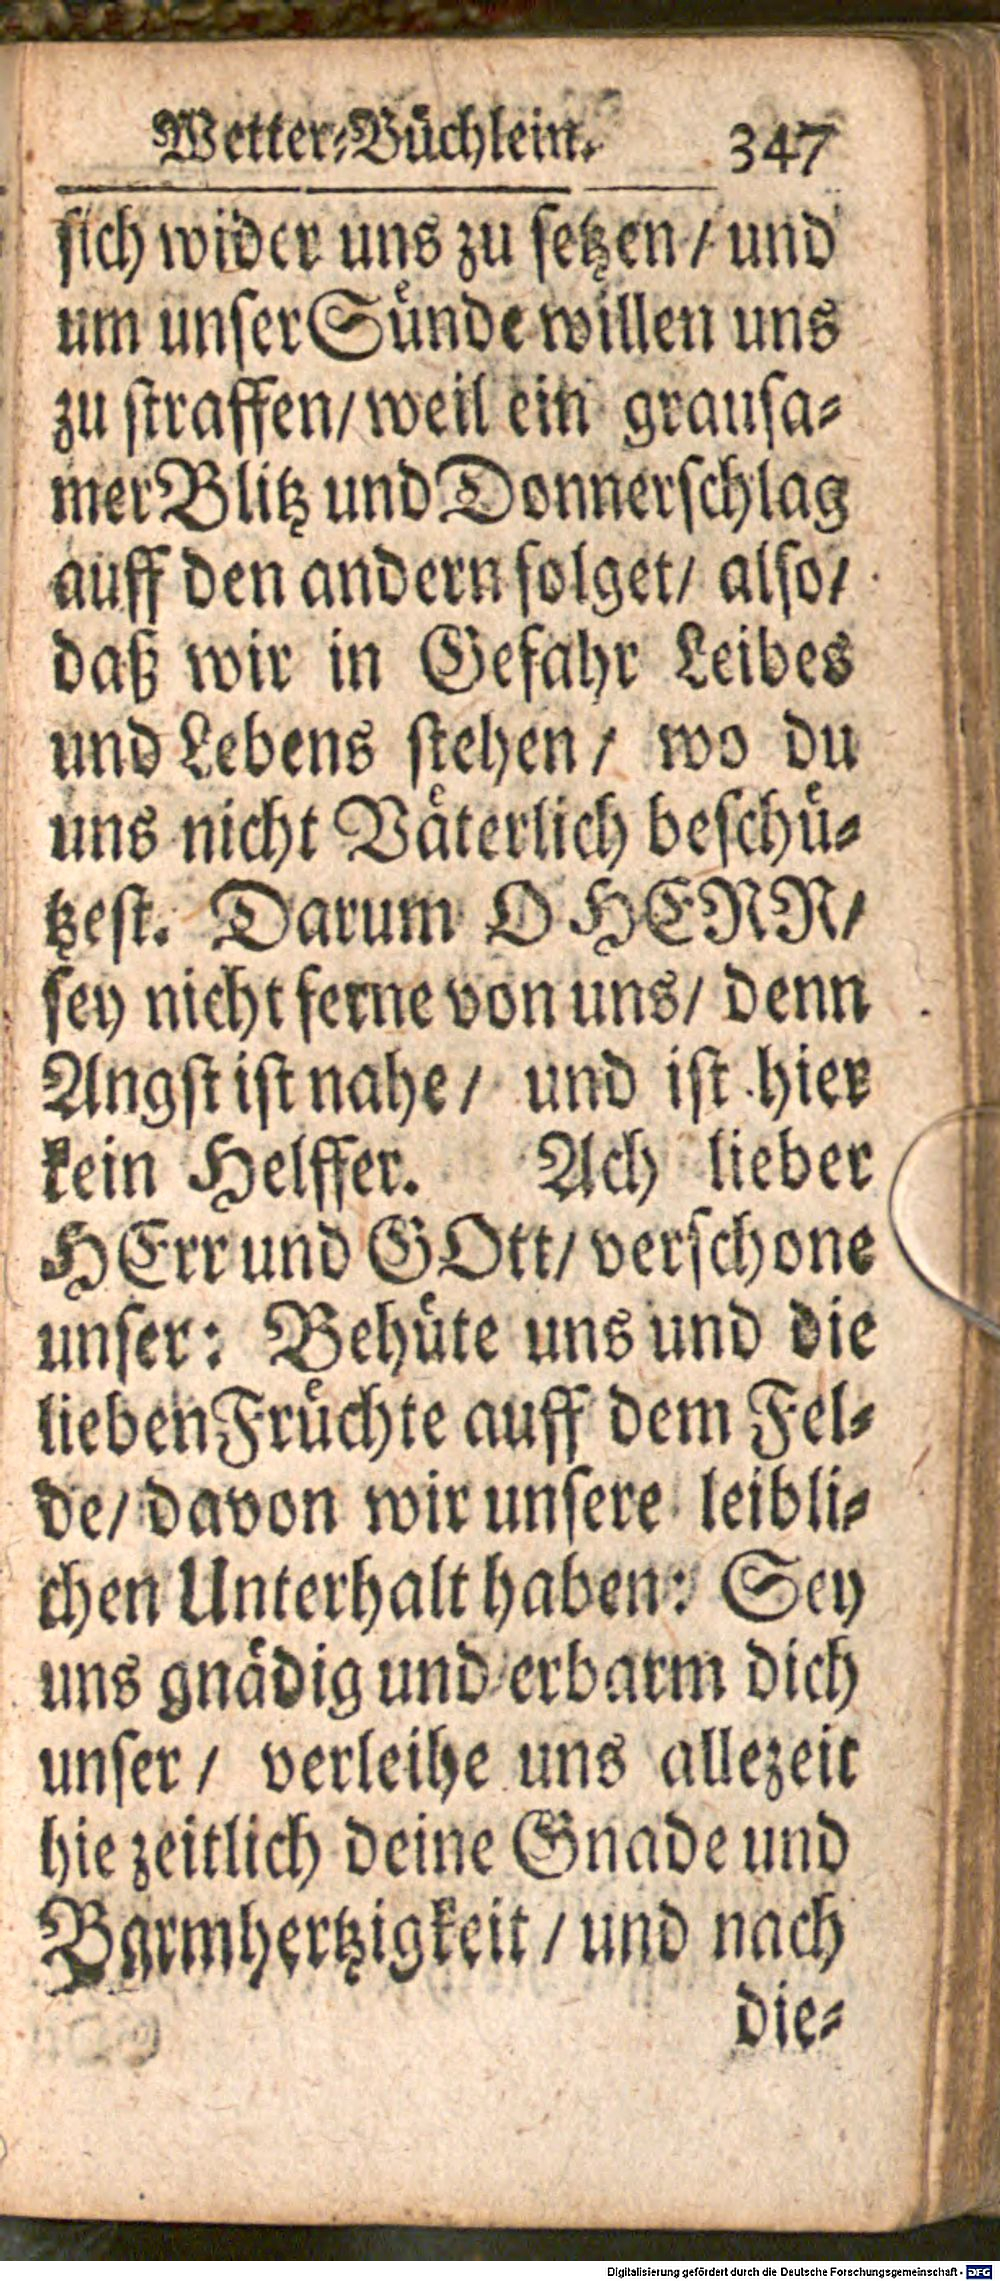 Wetter-Büchlein. 347
sich wider uns zu setzen / und
um unser Sünde willen uns
zu straffen / weil ein grausa-
mer Blitz und Donnerschlag
auff den andern folget / also /
daß wir in Gefahr Leibes
und Lebens stehen / wo du
uns nicht Väterlich beschü-
tzest. Darum O HERR /
sey nicht ferne von uns / denn
Angst ist nahe / und ist hier
kein Helffer. Ach lieber
HErr und GOtt / verschone
unser: Behüte uns und die
lieben Früchte auff dem Fel-
de / davon wir unsere leibli-
chen Unterhalt haben: Sey
uns gnädig und erbarm dich
unser / verleihe uns allezeit
hie zeitlich deine Gnade und
Barmhertzigkeit / und nach
die-
Digitalisierung gefördert durch die Deutsche Forschungsgemeinschaft - DFG